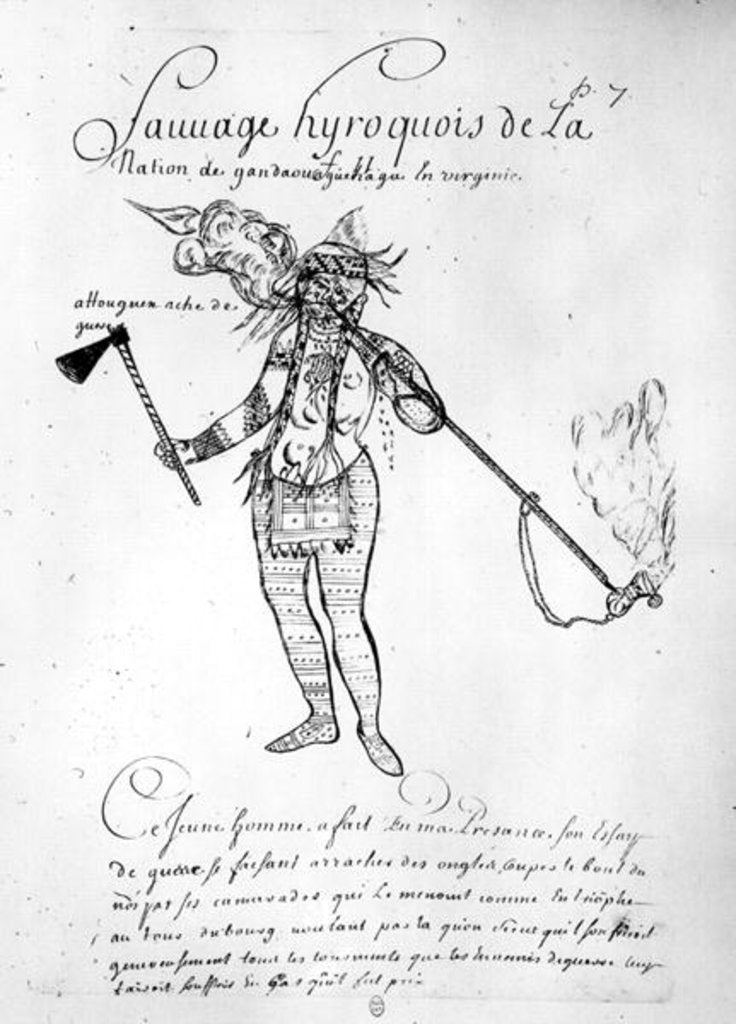 p. 7
Sauuage hyroquois de La
Nation de gandaouagueHaga En virginie.
attouguen ache de
guerre
Ce Jeune homme a fait En ma Presance son Essay
de guerre se faisant arracher des ongles Couper le bout du
nés par ses camarades qui Le menoint comme En trióphe
au tour du bourg voulant par la quon Creut quil souffriroit
genereusement tous les tourments que les Ennemis de guerre luy
fairoit souffrir En Cas quil fut pris